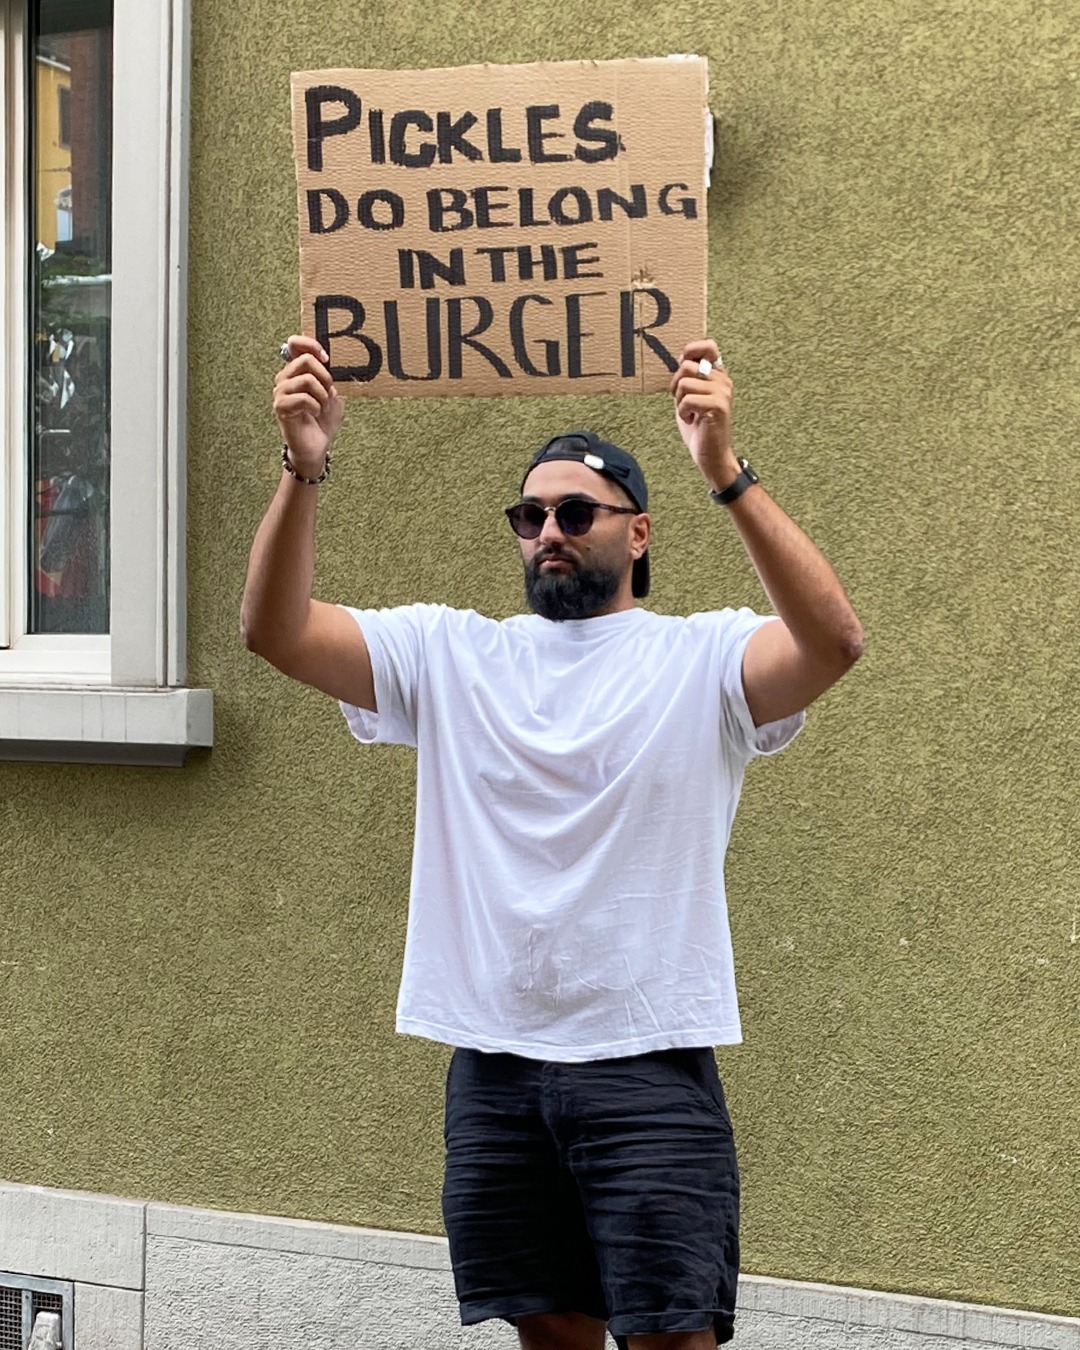 PICKLES
DO BELONG
IN THE
BURGER